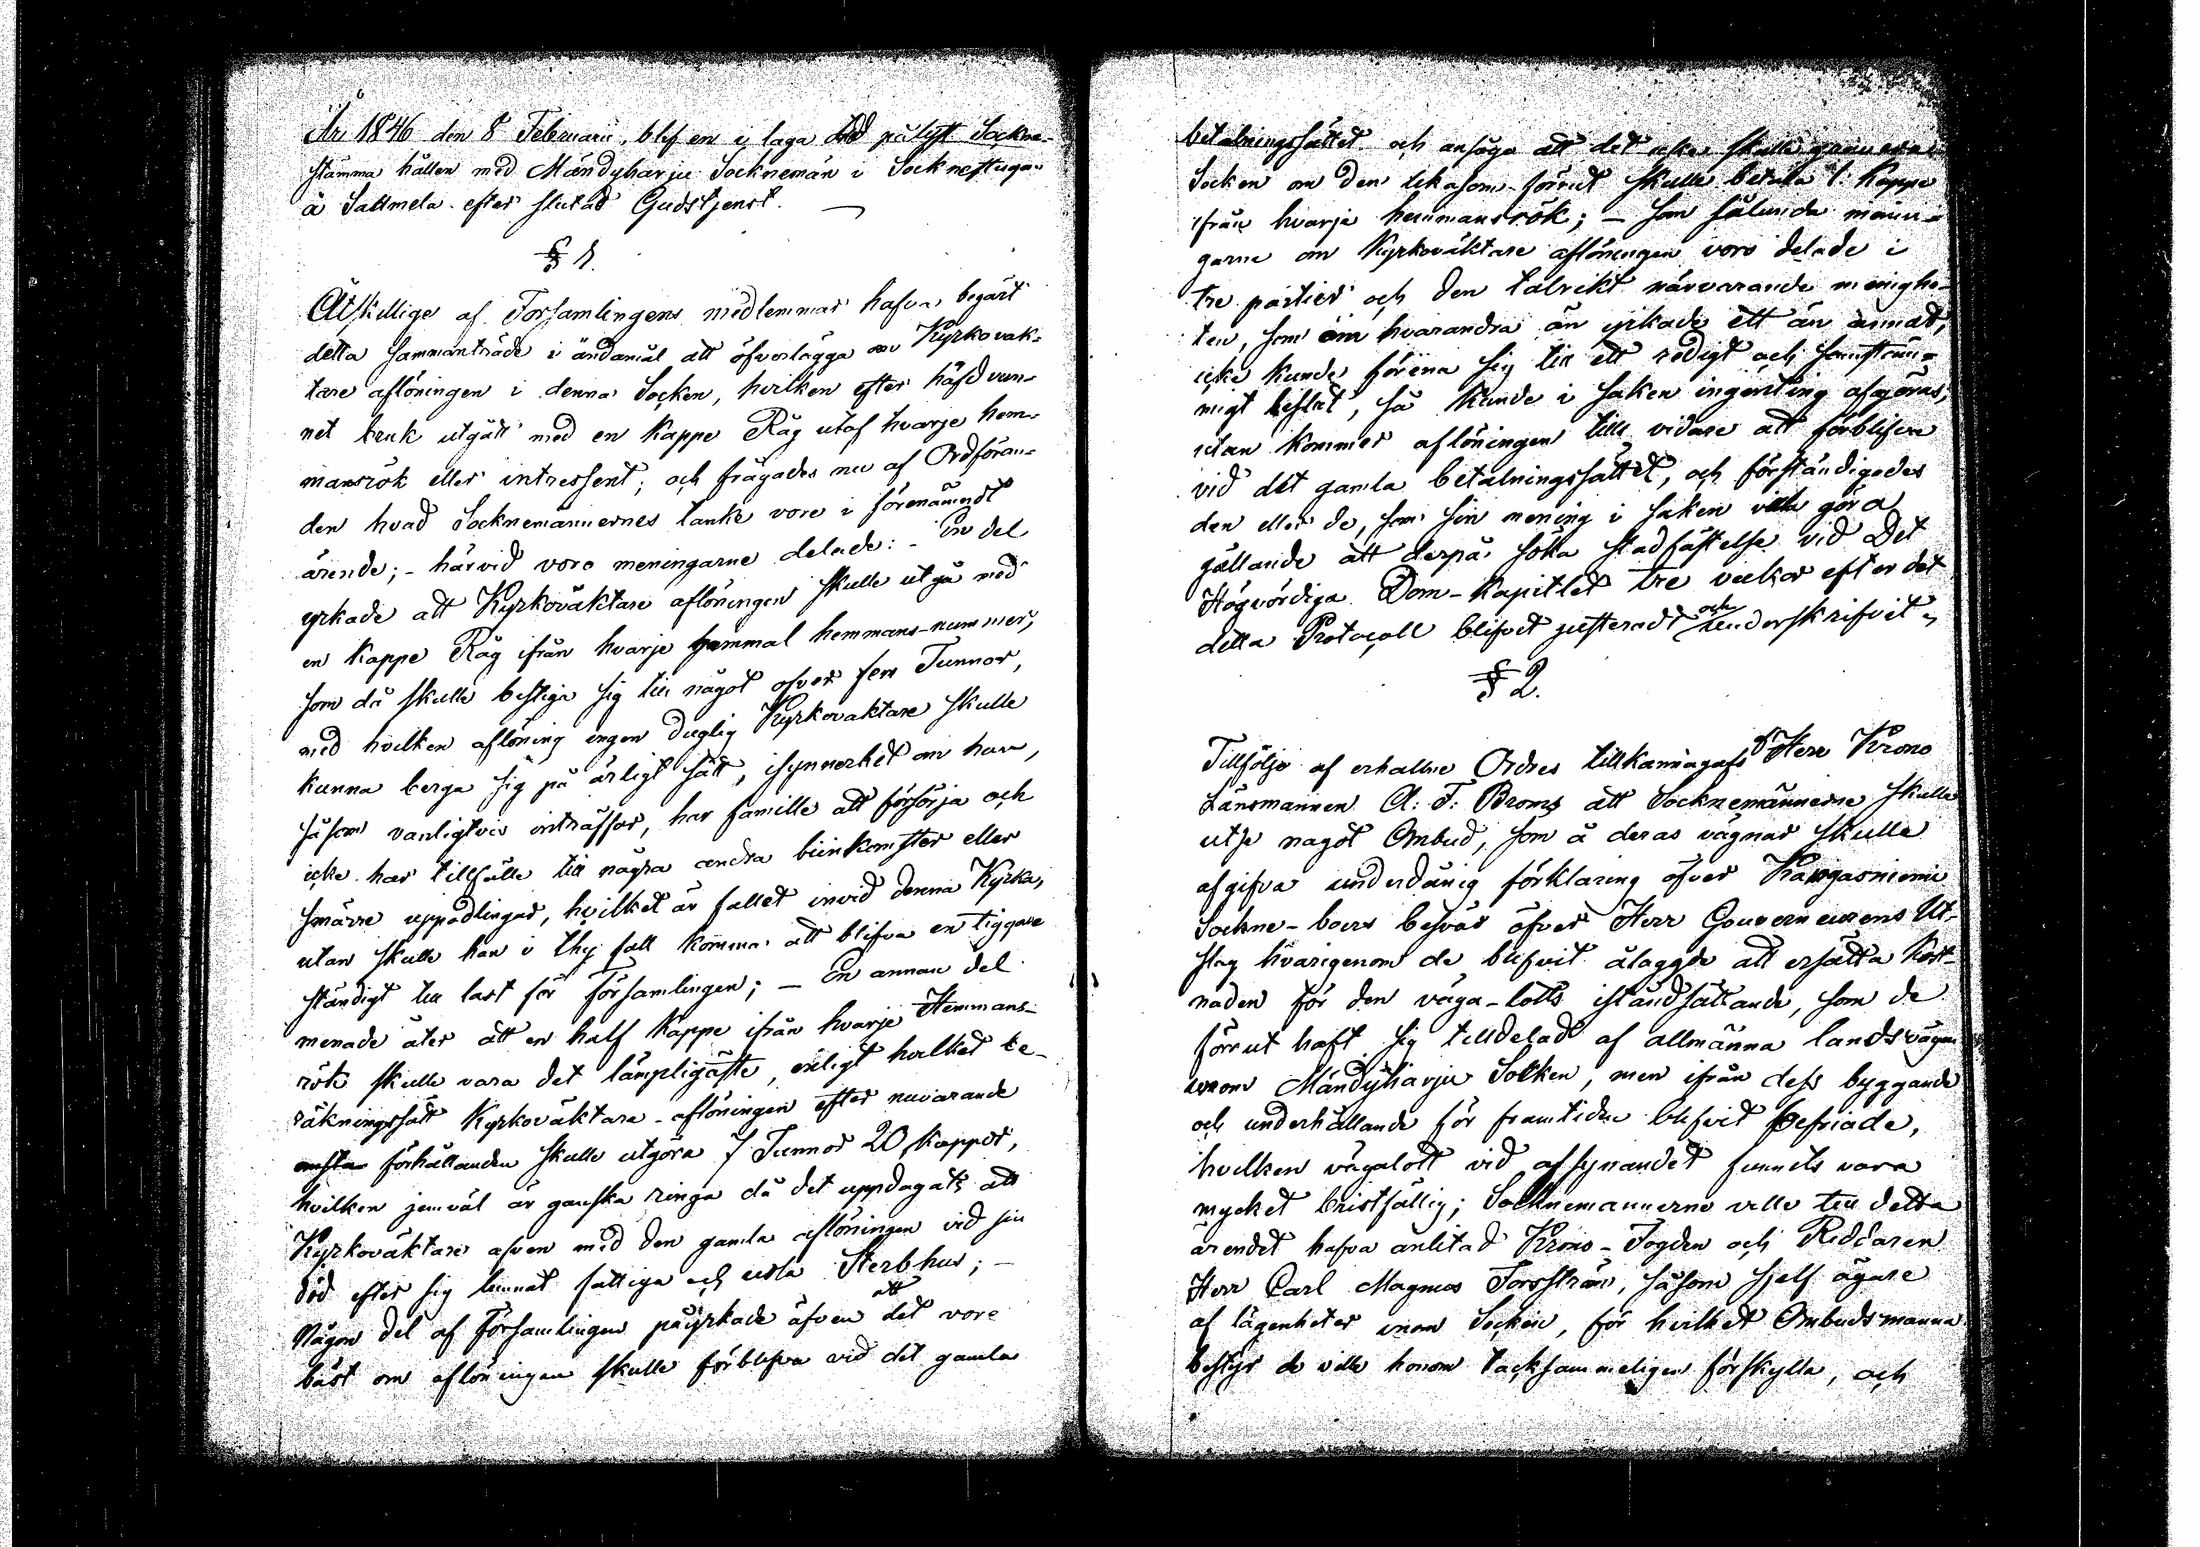 År 1846 den 8 Februarii, blef en i laga tid pålyst Sockne-
stämma hållen med Mändyharju Sockneman i Socknestugan
å Sallmela efter slutad Gudstjenst. —
§ 1.
Åtskillige af Församlingens medlemmar hafva begärt
detta sammanträde i ändamål att öfverlägga om Kyrkovak-
tare aflöningen i denna Socken, hvilken efter häfdvun-
net bruk utgått med en Kappe Råg utaf hvarje hem-
mansrök eller intressent; och frågades nu af Ordföran-
den hvad Socknemännernes tanke vore i förenämndt
ärende; - härvid voro meningarne delade: - En del
yrkade att Kyrkoväktare aflöningen skulle utgå med
en Kappe Råg ifrån hvarje gammal hemmans-nummer,
som då skulle bestiga sig till något öfver fem Tunnor,
med hvilken aflöning ingen duglig Kyrkovaktare skulle
kunna berga sig på ärligt sätt, isynnerhet om han,
såsom vanligtvis inträffar, har famille att försörja och
icke har tillfälle till några andra biinkomster eller
smärre uppodlingar, hvilket är fallet invid denna Kyrka,
utan skulle han i thy fall komma att blifva en tiggare
ständigt till last för Församlingen; — En annan del
menade åter att en half Kappe ifrån hvarje Hemmans-
rök skulle vara det lämpligaste, enligt hvilket be-
räkningssätt Kyrkoväktare-aflöningen efter nuvarande
förhållanden skulle utgöra 7 Tunnor 20 kappar,
hvilken jemväl är ganska ringa då det uppdagats att
Kyrkoväktare äfven med den gamla aflöningen vid sin
död efter sig lemnat fattiga och usla Sterbhus; —
Någon del af Församlingen påyrkade äfven att det vore
bäst om aflöningen skulle förblifva vid det gamla
betalningssättet och ansågo att det icke skulle gravera
Socken om den likasom förrut skulle betala 1 Kappe
ifrån hvarje hemmansrök; — som sålunda menin-
garne om Kyrkoväktare aflöningen voro delade i
tre partier och den talrikt närvarande menighe-
ten, som om hvarandra än yrkade ett än annat,
icke kunde förena sig till ett redigt och samstäm-
migt beslut, så kunde i saken ingenting afgöras,
utan kommer aflöningen tills vidare att förblifva
vid det gamla betalningssättet, och förständigades
den eller de, som sin mening i saken vilja göra
gällande att derpå söka stadfästelse vid Det
Högvördiga Dom-Kapitlet tre veckor efter det
detta Protocoll blifvit justeradt och underskrifvit
§ 2.
Tillfölje af erhallne Ordres tillkännagafs af Herr Krono
Länsmannen A: F: Broms att Socknemännerne skulle
utse nagot Ombud, som å deras vägnar skulle
afgifva underdånig förklaring öfver Kangasniemi
Sockne-boers besvär öfver Herr Gouverneurens Ut-
slag hvarigenom de blifvit ålaggde att ersätta Kost-
naden för den väga-lotts iståndsättande, som de
förrut haft sig tilldelad af allmänna landsvägen
inom Mändyharju Socken, men ifrån dess byggande
och underhållande för framtiden blifvit befriade,
hvilken vägalott vid afsynandet funnits vara
mycket bristfällig; Socknemännerne ville till detta
ärendet hafva anlitad Krono-Fogden och Riddaren
Herr Carl Magnus Forsström, såsom sjelf ägare
af lägenheter inom Socken, för hvilket Ombudsmanna
bestyr de ville honom tacksammeligen förskylla, och